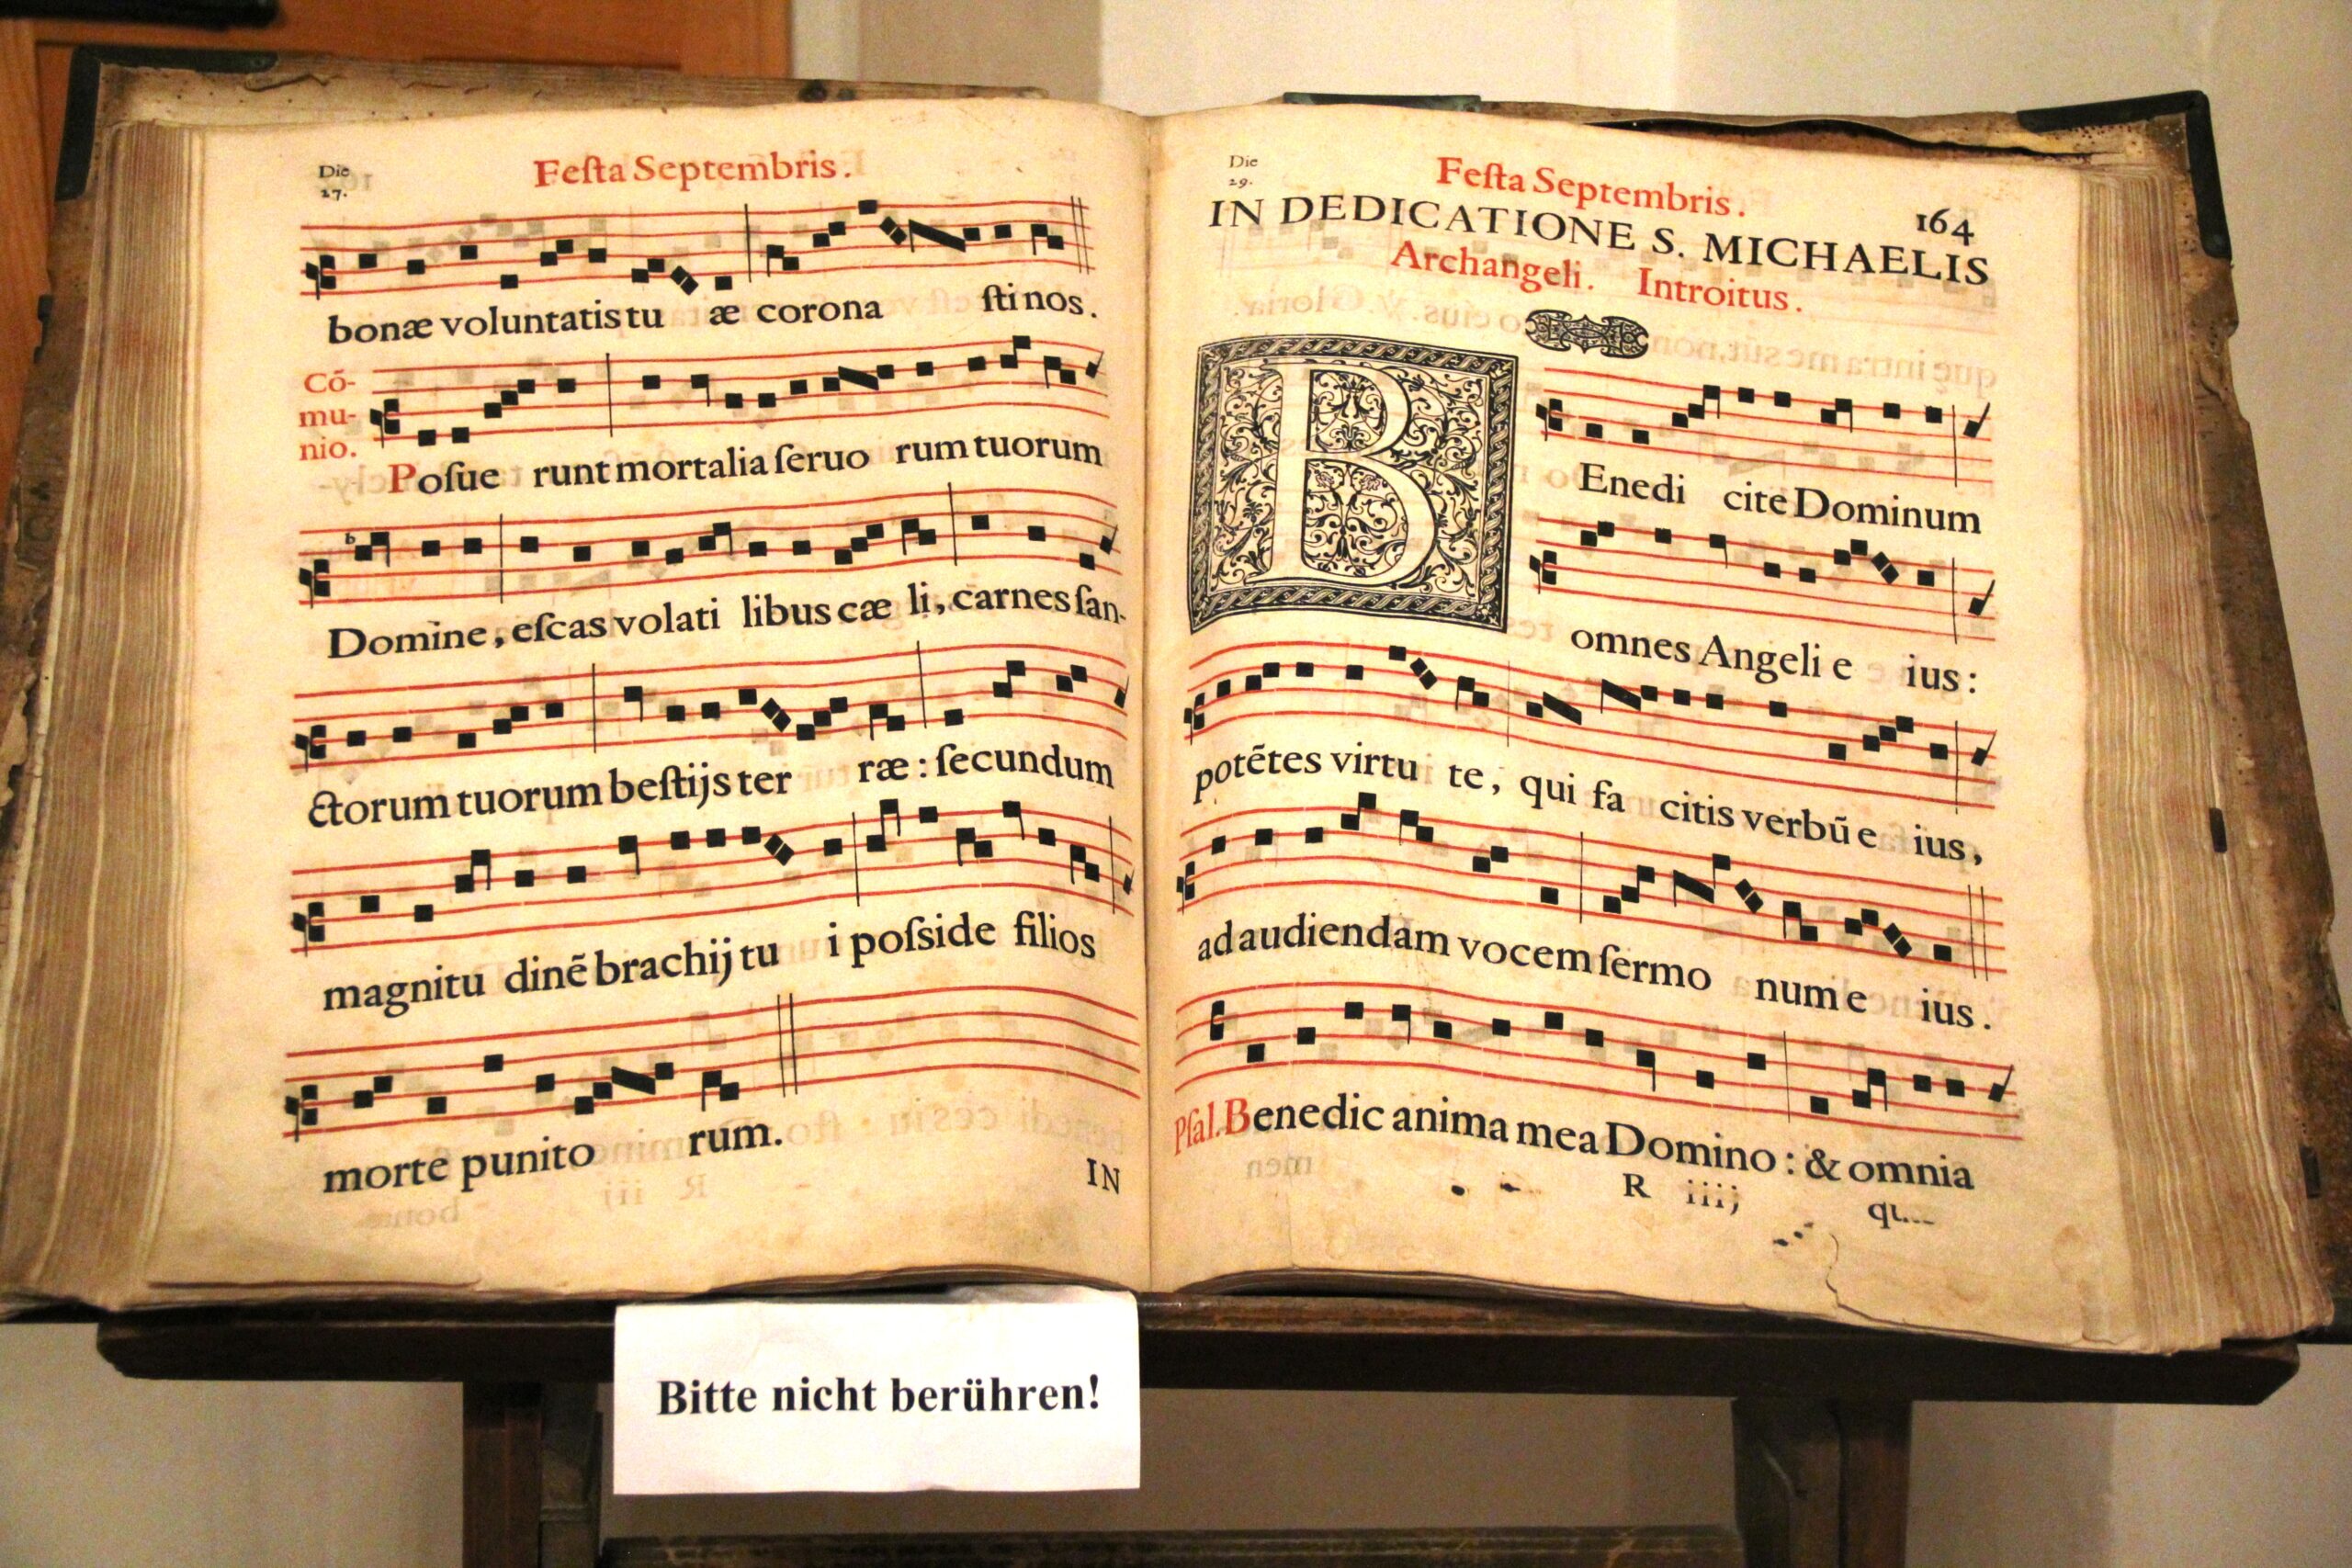 Die
27.
Feſta Septembris.
bonæ voluntatis tu æ corona ſti nos.
Cō-
mu-
nio.
Poſue runt mortalia ſeruo rum tuorum
Domine, eſcas volati libus cæ li, carnes ſan-
ctorum tuorum beſtijs ter ræ: ſecundum
magnitu dinē brachij tu i poſside filios
morte punito rum.
IN
Die
29.
Feſta Septembris.
164
IN DEDICATIONE S. MICHAELIS
Archangeli. Introitus.
BEnedi cite Dominum
omnes Angeli e ius:
potētes virtu te, qui fa citis verbū e ius,
ad audiendam vocem ſermo num e ius.
Pſal. Benedic anima mea Domino: & omnia
R iiij
Bitte nicht berühren!